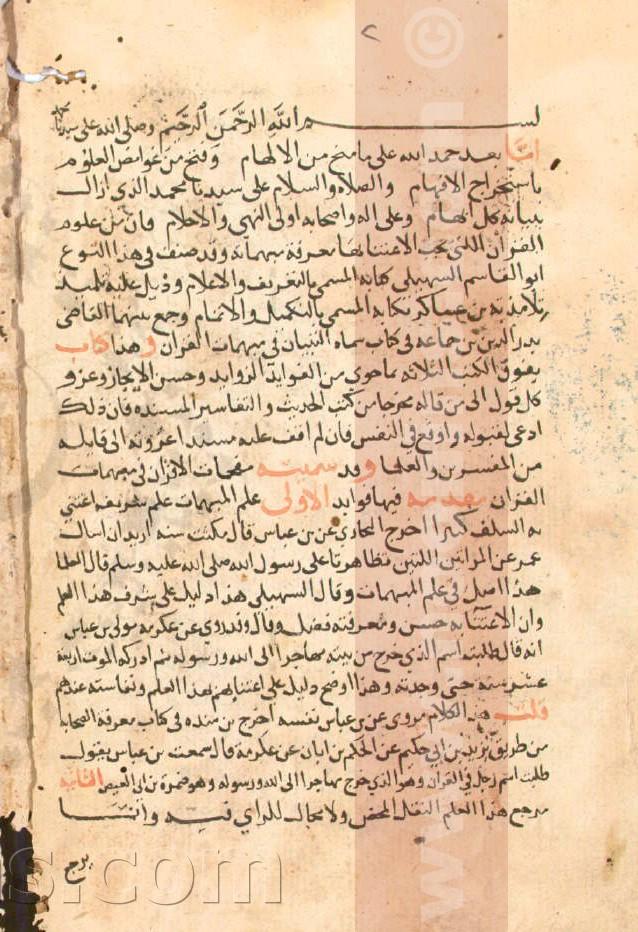 ٢
بسم الله الرحمن الرحيم وصلى الله على سيدنا محمد
اما بعد حمد الله على ما منح من الالهام وفتح من غوامض العلوم
باستخراج الافهام والصلاة والسلام على سيدنا محمد الذي ازال
ببيانه كل ابهام وعلى اله واصحابه اولى النهى والاحلام فان من علوم
القران اللتى يجب الاعتنا بها معرفة مبهماته وقد صنف في هذا النوع
ابو القاسم السهيلى كتابه المسمى بالتعريف والاعلام وذيل عليه تلميذ
تلامذته بن عساكر بكتابه المسمى بالتكميل والاتمام وجمع بينهما القاضى
بدر الدين بن جماعه في كتاب سماه التبيان في مبهمات القران وهذا كتاب
يفوق الكتب الثلاثه بما حوى من الفوايد الزوايد وحسن الايجاز وعزو
كل قول الى من قاله مخرجا من كتب الحديث والتفاسير المسنده فان ذلك
ادعى لقبوله واوقع في النفس فان لم اقف عليه مسندا عزوته الى قايله
من المفسرين والعلما وقد سميته مفحمات الاقران في مبهمات
القران مقدمه فيها فوايد الاولى علم المبهمات علم شريف اعتنى
به السلف كثيرا اخرج البخارى عن بن عباس قال مكثت سنه اريد ان اسال
عمر عن المراتين اللتين تظاهرتا على رسول الله صلى الله عليه وسلم قال العلما
هذا اصل في علم المبهمات وقال السهيلى هذا دليل على شرف هذا العلم
وان الاعتنا به حسن ومعرفته فضل وقال وقد روى عن عكرمه مولى بن عباس
انه قال طلبت اسم الذي خرج من بيته مهاجرا الى الله ورسوله ثم ادركه الموت اربعة
عشر سنه حتى وجدته وهذا اوضح دليل على اعتنايهم بهذا العلم ونفاسته عندهم
قلت هذا الكلام مروى عن بن عباس نفسه اخرج بن منده في كتاب معرفة الصحابه
من طريق يزيد بن ابى حكيم عن الحكم بن ابان عن عكرمة قال سمعت بن عباس يقول
طلبت اسم رجل في القران وهو الذي خرج مهاجرا الى الله ورسوله وهو ضمرة بن ابى العيص الثانيه
مرجع هذا العلم النقل المحض ولا مجال للراي فيه وانما
يرجع
s.com
www
©